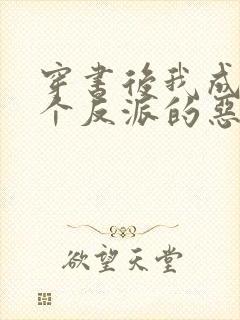 穿書後我成
个反派的惡
欲望天堂